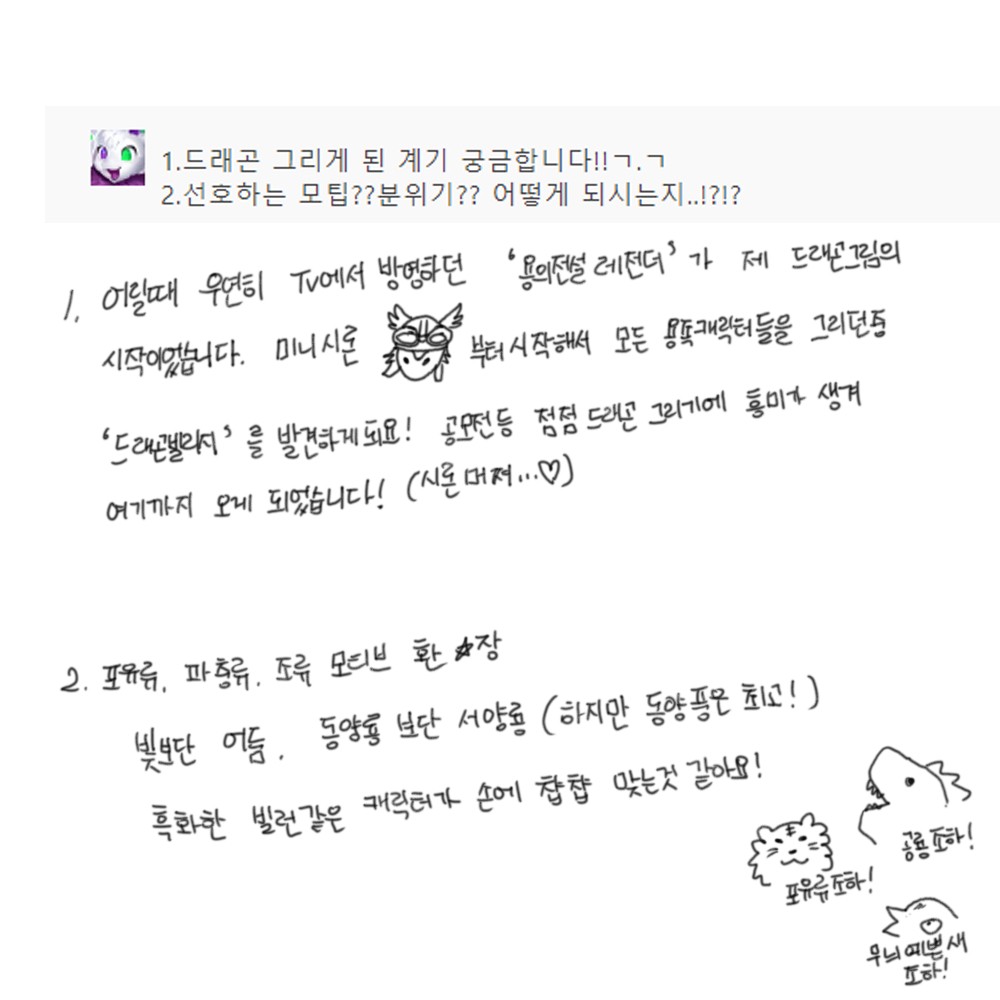 1.드래곤 그리게 된 계기 궁금합니다!!ㄱ.ㄱ
2.선호하는 모팁??분위기?? 어떻게 되시는지..!?!?
1. 어릴때 우연히 TV에서 방영하던 '용의전설 레전더'가 제 드래곤그림의
시작이었습니다. 미니시론 부터 시작해서 모든 용족캐릭터들을 그리던중
'드래곤빌리지'를 발견하게되요! 공모전등 점점 드래곤 그리기에 흥미가 생겨
여기까지 오게 되었습니다! (시론 머쪄...♡)
2. 포유류, 파충류, 조류 모티브 환☆장
빛보단 어둠, 동양룡 보단 서양룡 (하지만 동양풍은 최고!)
흑화한 빌런같은 캐릭터가 손에 챱챱 맞는것 같아요!
공룡조하!
포유류조하!
무늬예쁜새
조하!